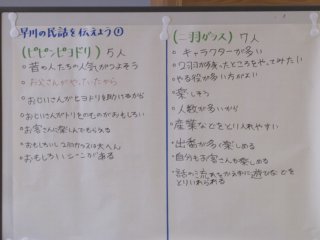 早川の民話を伝えよう①
(ピピンピヨドリ) 5人
・昔の人たちの人気がつよそう
・お父さんがやっていたから
・おじいさんがヒヨドリを助けるから
・おじいさんがトリをのむのがおもしろい
・お客さんに楽しんでもらえる
・おもしろいシーンがある
(二羽ガラス) 7人
・キャラクターが多い
・2羽が
・やる役が多い方がよい
・楽しそう
・人数が多いから
・産業などをとり入れやすい
・出番が多く楽しめる
・自分もお客さんも楽しめる
・話の流れをかえずに遊びなどを
とりいれられる